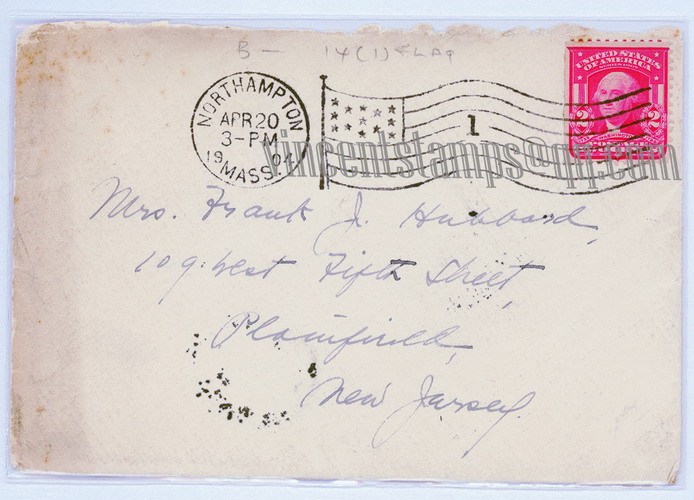 B- 14(1) FLAG
NORTHAMPTON
APR 20
3-PM
1904
MASS.
1
UNITED STATES
OF AMERICA
2 2
vincentstamps@qq.com
Mrs. Frank J. Hubbard,
109 West Fifth Street,
Plainfield,
New Jersey.